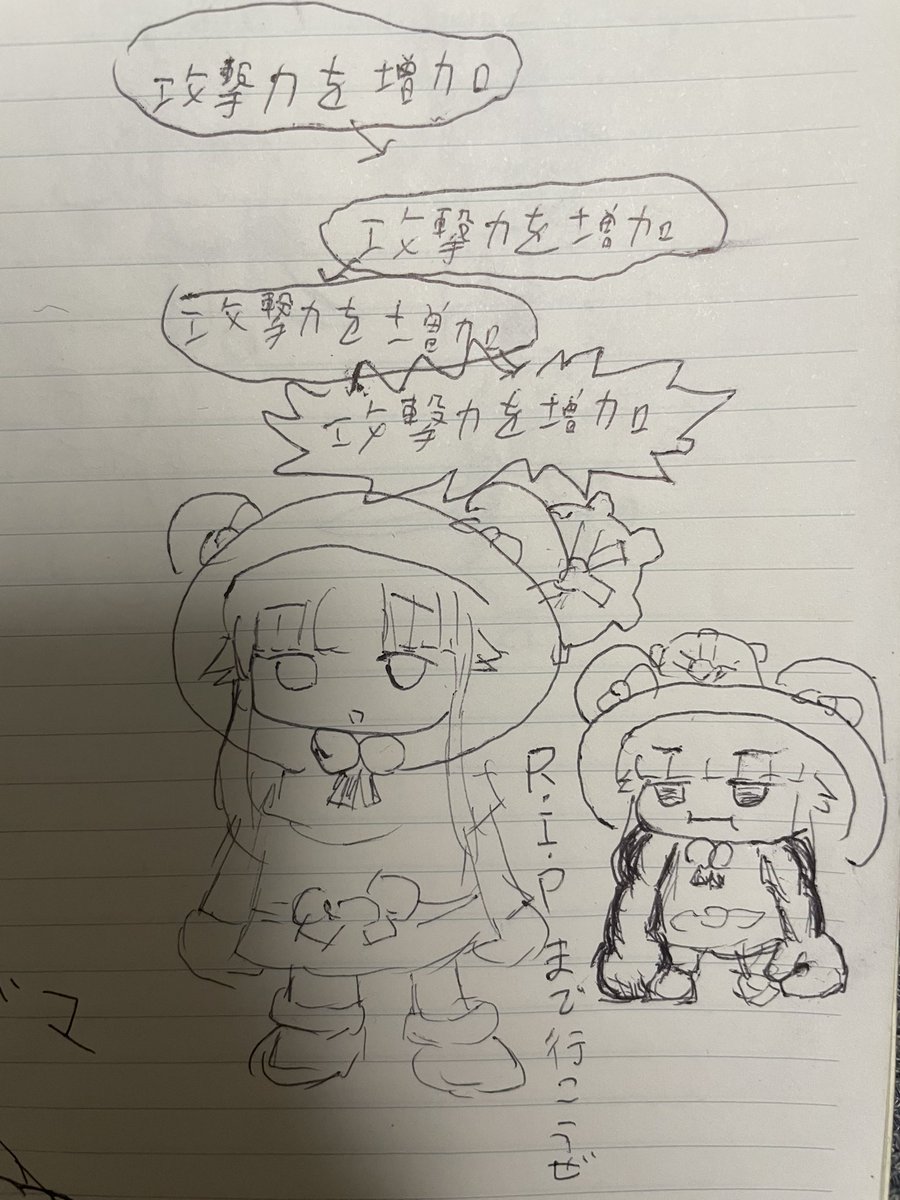 攻撃力を増加
攻撃力を増加
攻撃力を増加
攻撃力を増加
R.I.Pまで行こうぜ
マ